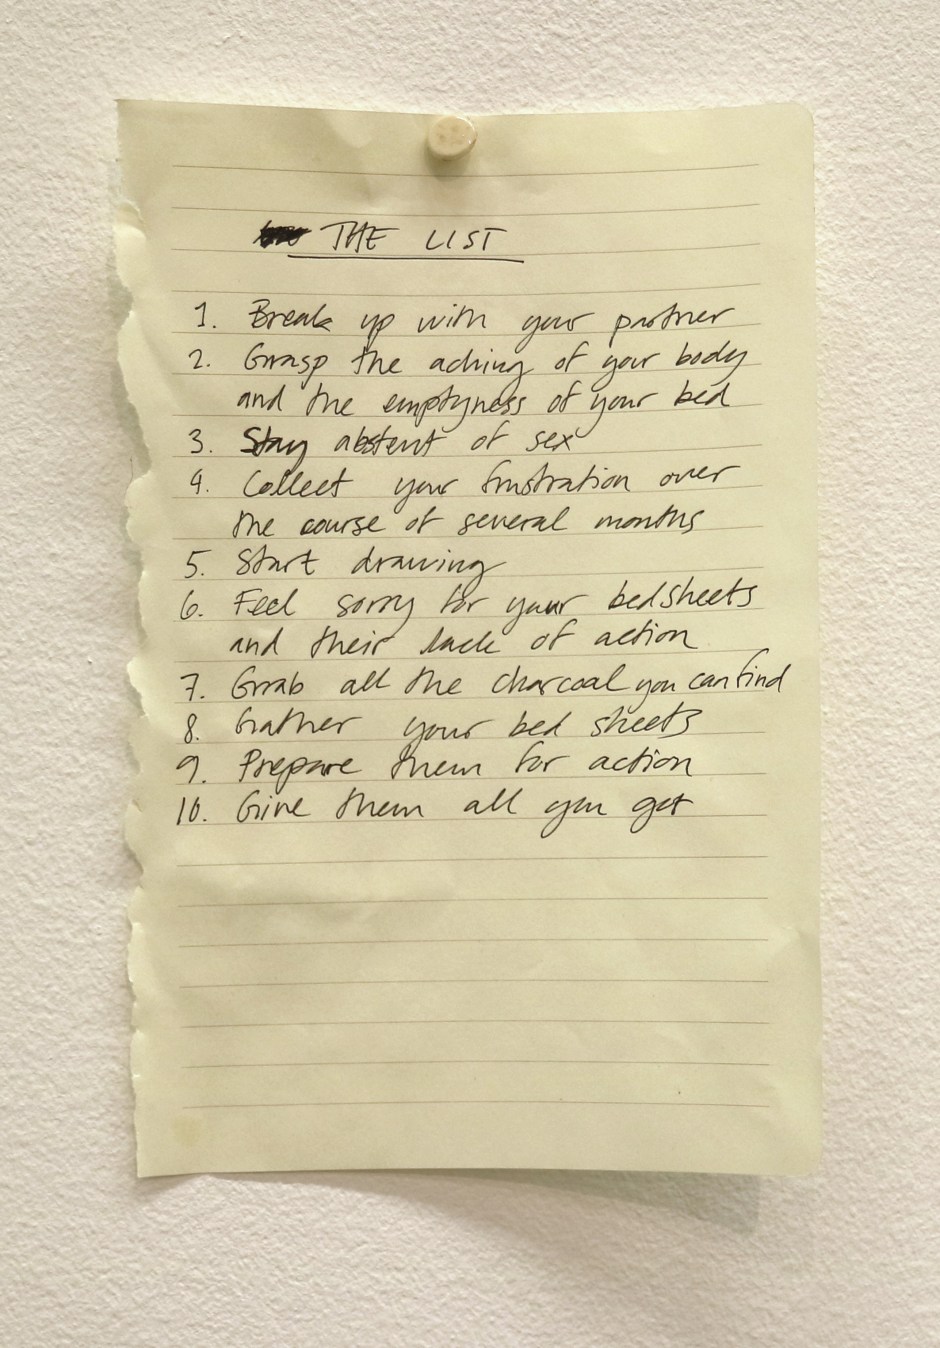 THE LIST
1. Break up with your partner
2. Grasp the aching of your body
and the emptyness of your bed
3. Stay abstent of sex
4. Collect your frustration over
the course of several months
5. Start drawing
6. Feel sorry for your bedsheets
and their lack of action
7. Grab all the charcoal you can find
8. Gather your bed sheets
9. Prepare them for action
10. Give them all you got